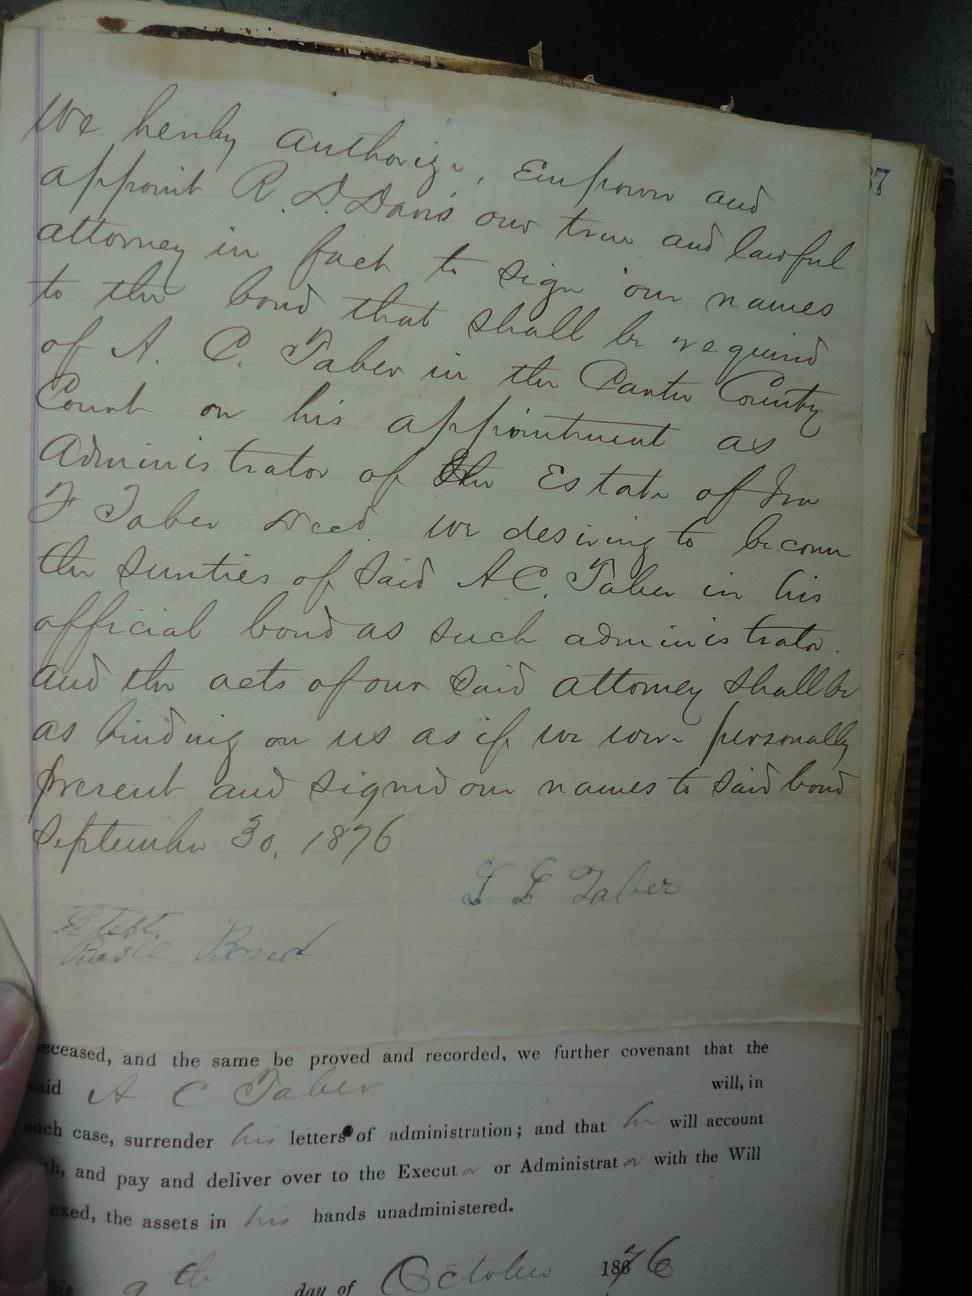 We hereby authorize, Empower and
appoint R. D. Davis our true and lawful
attorney in fact to sign our names
to the bond that shall be required
of A. C. Taber in the Carter County
Court on his appointment as
Administrator of the Estate of Ira
F Taber Decd. we desiring to become
the sureties of said A C. Taber in his
official bond as such administrator.
and the acts of our said attorney shall be
as binding on us as if we were personally
present and signed our names to said bond
September 30, 1876
L L Taber
Attest.
Bond
87
eceased, and the same be proved and recorded, we further covenant that the
aid A C Taber will, in
uch case, surrender his letters of administration; and that he will account
th, and pay and deliver over to the Executor or Administrator with the Will
exed, the assets in his hands unadministered.
his 9th day of October 1876